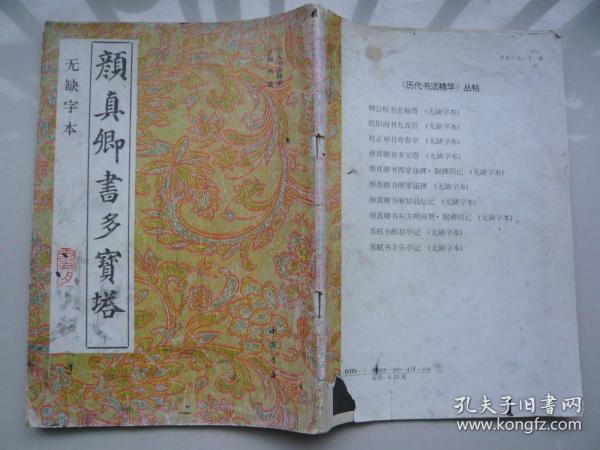 顔真卿書多寶塔
无缺字本
中国书店
《历代书法精华》丛帖
柳公权书玄秘塔 (无缺字本)
欧阳询书九成宫 (无缺字本)
赵孟頫书寿春堂 (无缺字本)
颜真卿书多宝塔 (无缺字本)
颜真卿书郭家庙碑·附碑阴记 (无缺字本)
颜真卿书颜家庙碑 (无缺字本)
颜真卿书麻姑仙坛记 (无缺字本)
颜真卿书东方朔画赞·附碑阴记 (无缺字本)
苏轼书醉翁亭记 (无缺字本)
苏轼书丰乐亭记 (无缺字本)
定价 4.20元
孔夫子旧书网
www.kongfz.com